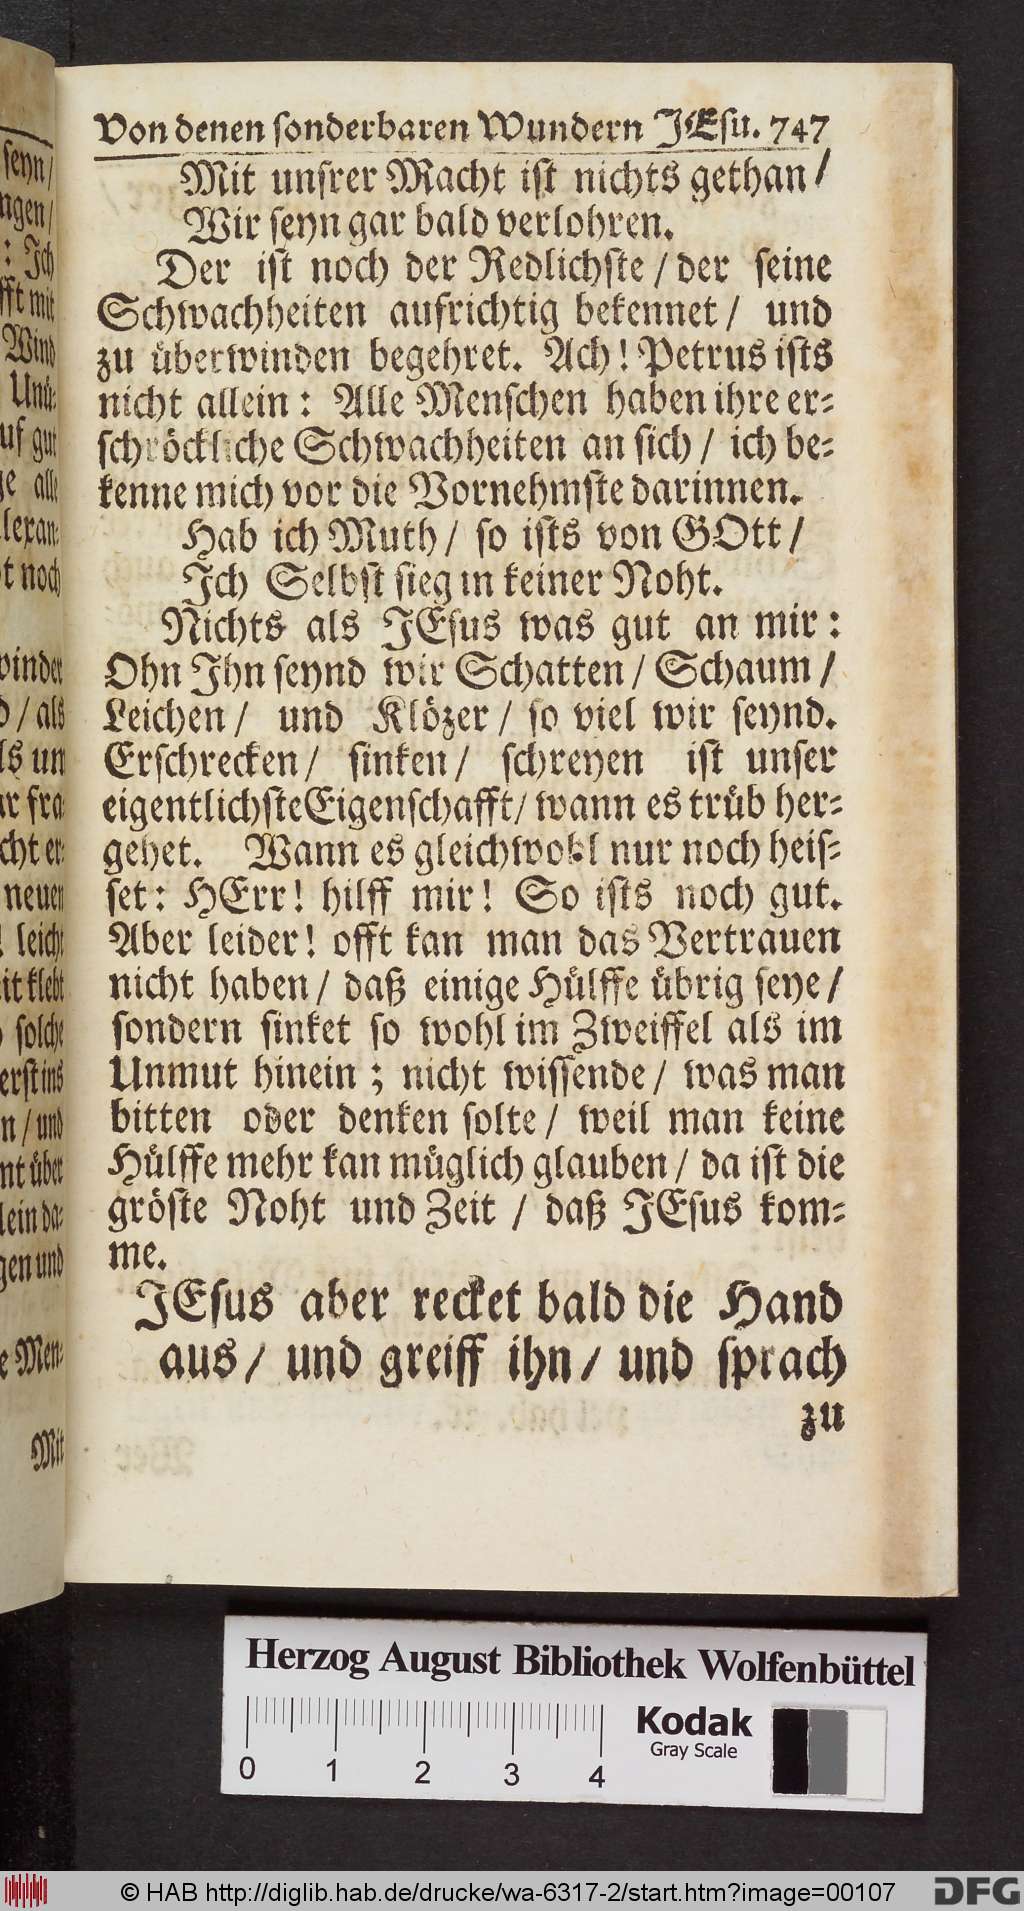 Von denen sonderbaren Wundern JEsu. 747
Mit unsrer Macht ist nichts gethan /
Wir seyn gar bald verlohren.
Der ist noch der Redlichste / der seine
Schwachheiten aufrichtig bekennet / und
zu überwinden begehret. Ach! Petrus ists
nicht allein: Alle Menschen haben ihre er-
schröckliche Schwachheiten an sich / ich be-
kenne mich vor die Vornehmste darinnen.
Hab ich Muth / so ists von GOtt /
Ich Selbst sieg in keiner Noht.
Nichts als JEsus was gut an mir:
Ohn Ihn seynd wir Schatten / Schaum /
Leichen / und Klözer / so viel wir seynd.
Erschrecken / sinken / schreyen ist unser
eigentlichste Eigenschafft / wann es trüb her-
gehet. Wann es gleichwohl nur noch heis-
set: HErr! hilff mir! So ists noch gut.
Aber leider! offt kan man das Vertrauen
nicht haben / daß einige Hülffe übrig seye /
sondern sinket so wohl im Zweiffel als im
Unmut hinein; nicht wissende / was man
bitten oder denken solte / weil man keine
Hülffe mehr kan müglich glauben / da ist die
gröste Noht und Zeit / daß JEsus kom-
me.
JEsus aber recket bald die Hand
aus / und greiff ihn / und sprach
zu
seyn /
ngen /
: Ich
fft mit
Wind
Unü-
uf gut
ge alle
lexan-
t noch
winder
d / als
ls un
ar fra-
cht er-
neuen
! leicht
it klebt
solche
erst ins
n / und
nt über
lein da-
gen und
e Men-
Mit
Herzog August Bibliothek Wolfenbüttel
0 1 2 3 4
Kodak
Gray Scale
© HAB http://diglib.hab.de/drucke/wa-6317-2/start.htm?image=00107
DFG